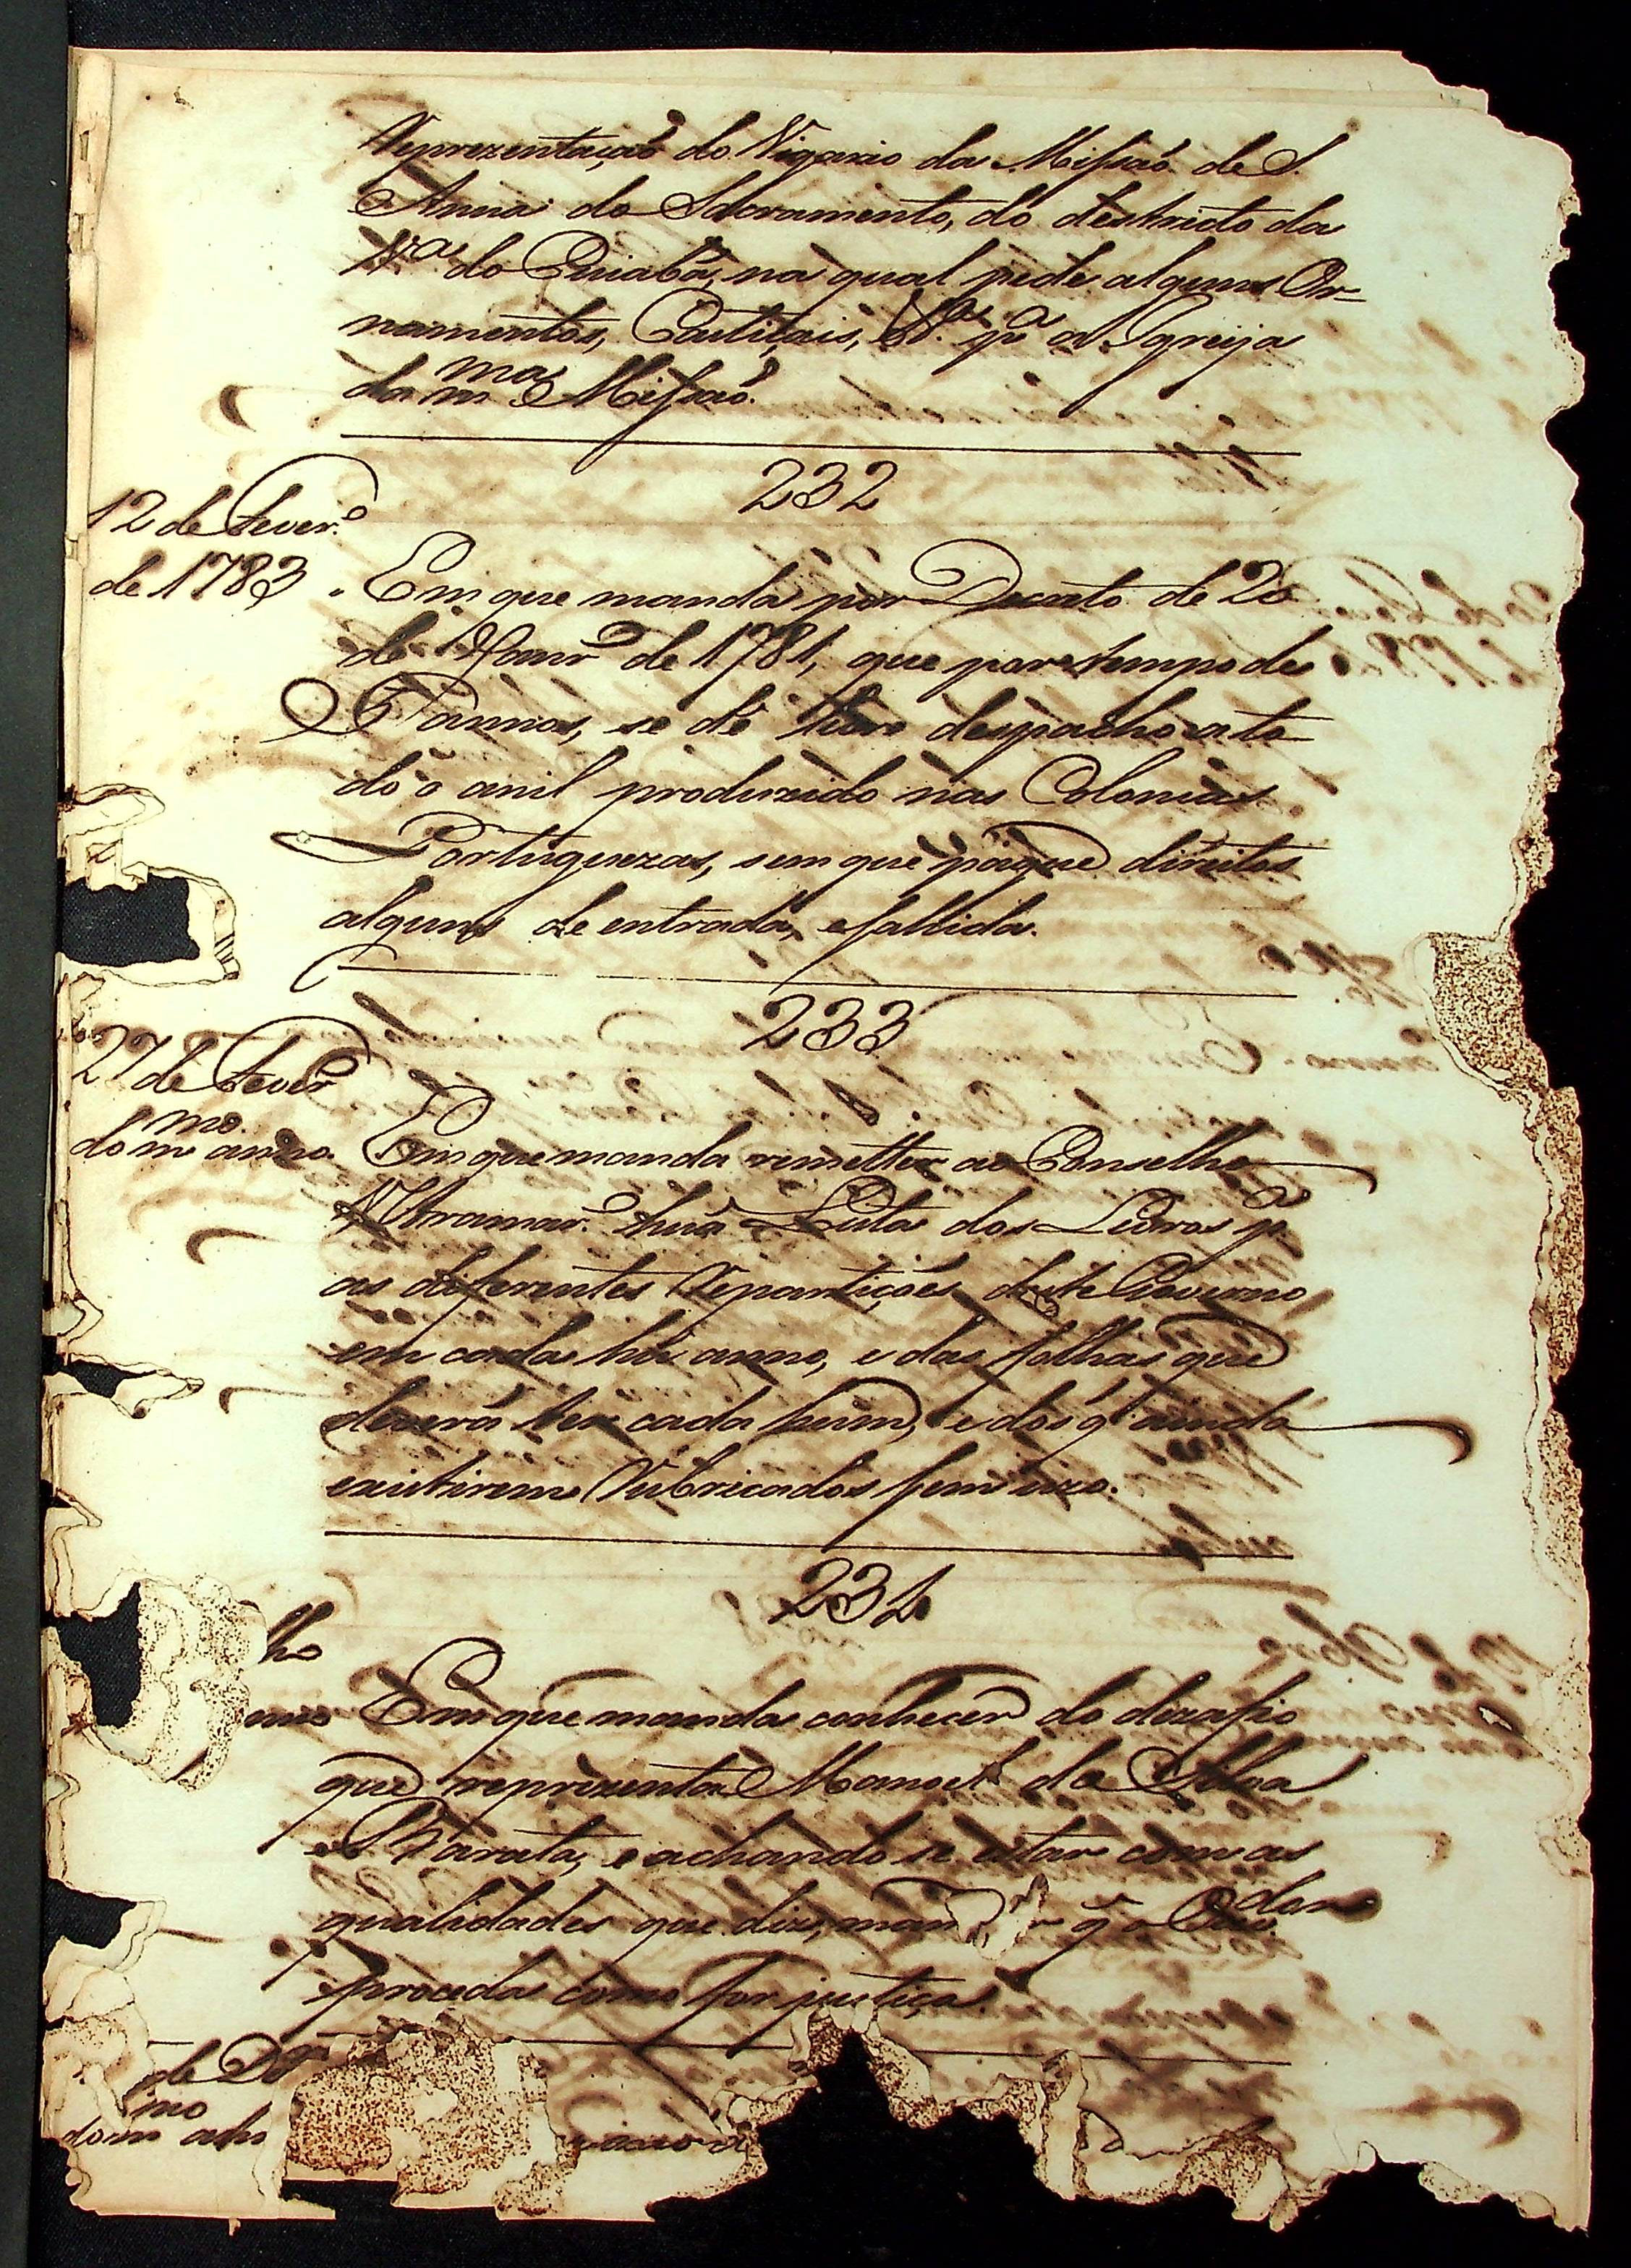 Reprezentação do Vigario da Missaõ de S.
Anna do Sacramento, do destricto da
V.a do Cuiabá, na qual pede alguns Or-
namentos, Castiçais, &.a p.a a Igreija
da m.ma Missaõ.
232
12 de Fever.o
de 1783
Em que manda por Decreto de 20
de Janr.o de 1781, que por tempo de
annos, se dê livre despacho a to
do o anil produzido nas Colonias
Portuguezas, sem que págue direitos
alguns de entrada, e sahida.
233
27 de Fever.o
do m.mo anno.
Em que manda remetter ao Conselho
Ultramar.o huã Lista dos Livros p.a
as diferentes Repartiçoẽs deste Governo,
em cada hũ anno, e das folhas que
deverá ter cada hum, e dos q' ainda
existirem Rubricados sem uzo.
234
lho
anno
Em que manda conhecer do dizafio
que reprezenta Manoel da Silva
Barata, e achando se estar com as
qualidades que diz, man q̃ o
proceda como for justiça.
de D
do m.mo an